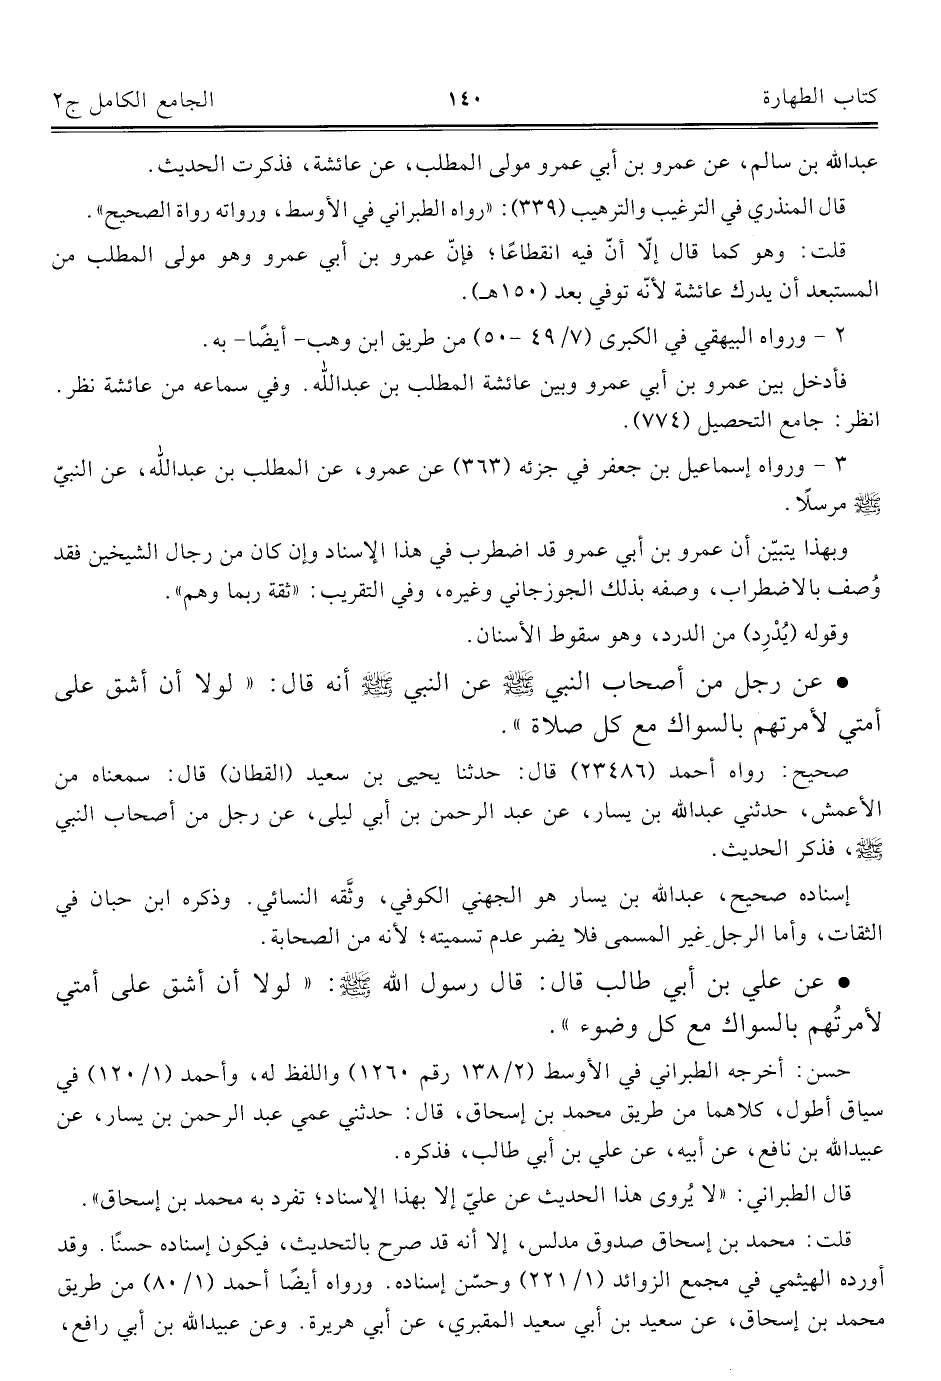 كتاب الطهارة ١٤٠ الجامع الكامل ج٢
عبدالله بن سالم، عن عمرو بن أبي عمرو مولى المطلب، عن عائشة، فذكرت الحديث.
قال المنذري في الترغيب والترهيب (٣٣٩): «رواه الطبراني في الأوسط، ورواته رواة الصحيح».
قلت: وهو كما قال إلّا أنّ فيه انقطاعًا؛ فإنّ عمرو بن أبي عمرو وهو مولى المطلب من
المستبعد أن يدرك عائشة لأنّه توفي بعد (١٥٠هـ).
٢ - ورواه البيهقي في الكبرى (٧/ ٤٩ -٥٠) من طريق ابن وهب- أيضًا- به.
فأدخل بين عمرو بن أبي عمرو وبين عائشة المطلب بن عبدالله. وفي سماعه من عائشة نظر.
انظر: جامع التحصيل (٧٧٤).
٣ - ورواه إسماعيل بن جعفر في جزئه (٣٦٣) عن عمرو، عن المطلب بن عبدالله، عن النبيّ
ﷺ مرسلًا.
وبهذا يتبيّن أن عمرو بن أبي عمرو قد اضطرب في هذا الإسناد وإن كان من رجال الشيخين فقد
وُصف بالاضطراب، وصفه بذلك الجوزجاني وغيره، وفي التقريب: «ثقة ربما وهم».
وقوله (يُدْرِد) من الدرد، وهو سقوط الأسنان.
• عن رجل من أصحاب النبي ﷺ عن النبي ﷺ أنه قال: « لولا أن أشق على
أمتي لأمرتهم بالسواك مع كل صلاة ».
صحيح: رواه أحمد (٢٣٤٨٦) قال: حدثنا يحيى بن سعيد (القطان) قال: سمعناه من
الأعمش، حدثني عبدالله بن يسار، عن عبد الرحمن بن أبي ليلى، عن رجل من أصحاب النبي
ﷺ، فذكر الحديث.
إسناده صحيح، عبدالله بن يسار هو الجهني الكوفي، وثَّقه النسائي. وذكره ابن حبان في
الثقات، وأما الرجل غير المسمى فلا يضر عدم تسميته؛ لأنه من الصحابة.
• عن علي بن أبي طالب قال: قال رسول الله ﷺ: « لولا أن أشق على أمتي
لأمرتُهم بالسواك مع كل وضوء ».
حسن: أخرجه الطبراني في الأوسط (٢/ ١٣٨ رقم ١٢٦٠) واللفظ له، وأحمد (١/ ١٢٠) في
سياق أطول، كلاهما من طريق محمد بن إسحاق، قال: حدثني عمي عبد الرحمن بن يسار، عن
عبيدالله بن نافع، عن أبيه، عن علي بن أبي طالب، فذكره.
قال الطبراني: «لا يُروى هذا الحديث عن عليّ إلا بهذا الإسناد؛ تفرد به محمد بن إسحاق».
قلت: محمد بن إسحاق صدوق مدلس، إلا أنه قد صرح بالتحديث، فيكون إسناده حسنًا. وقد
أورده الهيثمي في مجمع الزوائد (١/ ٢٢١) وحسّن إسناده. ورواه أيضًا أحمد (١/ ٨٠) من طريق
محمد بن إسحاق، عن سعيد بن أبي سعيد المقبري، عن أبي هريرة. وعن عبيدالله بن أبي رافع،